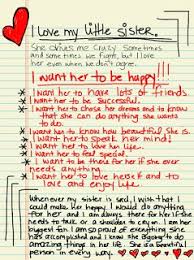 I love my little sister.
She drives me crazy sometimes
and some times we fight, but I love
her even when we don't agree.
I want her to be happy!!!
* I want her to have lots of friends.
* I want her to be successful.
* I want her to chase her dreams and to know
that she can do anything she wants
to do.
* I want her to know how beautiful she is.
* I want her to speak her mind!
* I want her to love fun in life.
* I want her to feel special.
* I want to be there for her if she ever
needs anything.
* I want her to love herself and to
love and enjoy life.
Whenever my sister is sad, I wish that I
could make her happy. I would do anything
for her and I am always there for her if she
needs to talk, or a shoulder to cry on. I am her
biggest fan. I am so proud of everything she
has accomplished and I know she is going to do
amazing things in her life. She is a beautiful
person in every way.